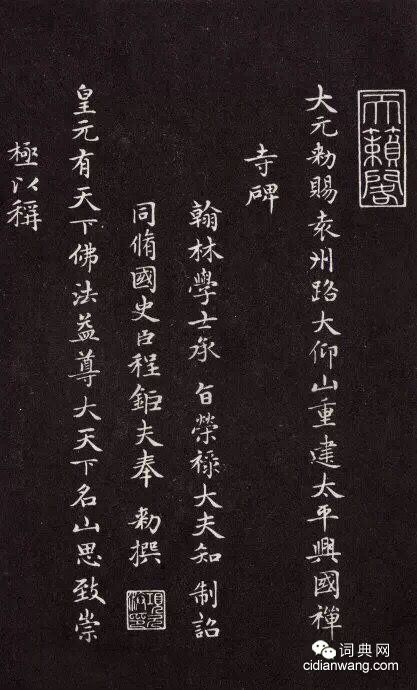 天籟閣
大元勑賜袁州路大仰山重建太平興國禪
寺碑
翰林學士承 旨榮祿大夫知 制詔
同脩國史臣程鉅夫奉 勑撰
項元汴印
皇元有天下佛法益尊大天下名山思致崇
極以稱
词典网
cidianwang.com